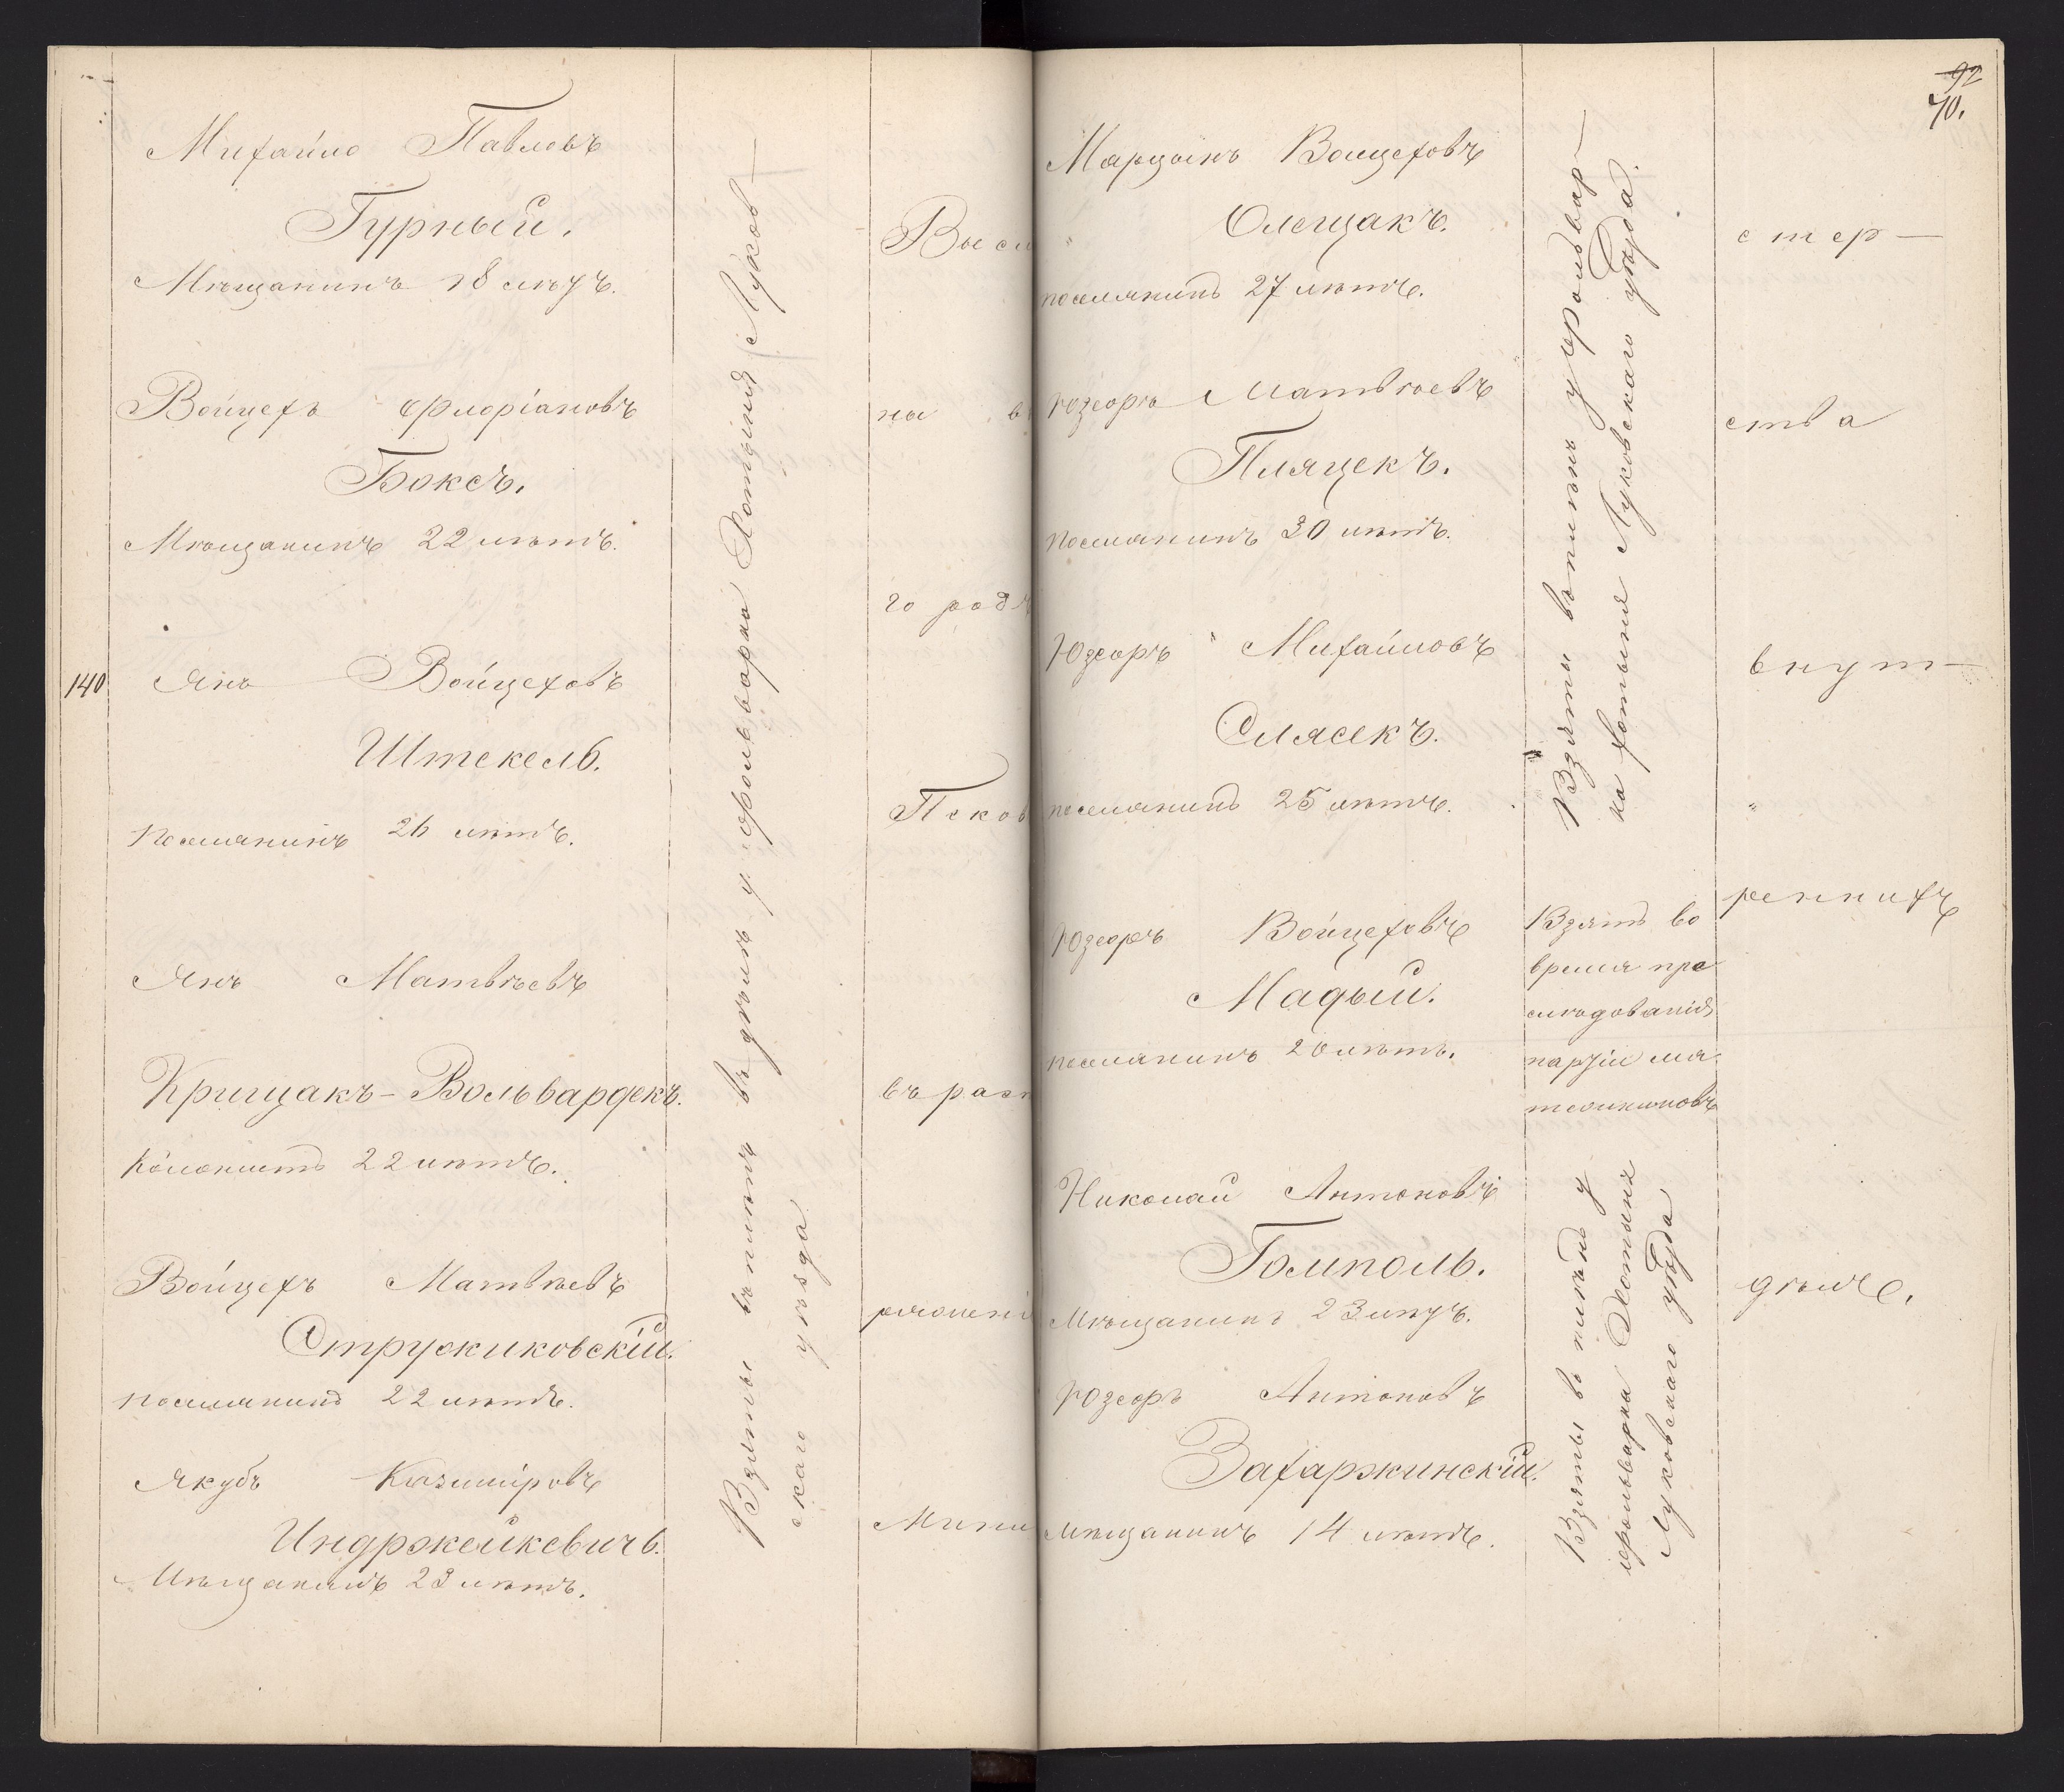 Михайло Павловъ
Гурный.
Мѣщанинъ 18 лѣтъ.
Войцехъ Флоріановъ
Боксъ.
Мѣщанинъ 22 лѣтъ.
140 Янъ Войцеховъ
Штекель.
поселянинъ 26 лѣтъ.
Янъ Матвѣевъ
Крищакъ-Вольвардекъ.
Колонистъ 22 лѣтъ.
Войцехъ Матвѣевъ
Стружиковскій.
поселянинъ 22 лѣтъ.
Якубъ Казиміровъ
Индржейкевичъ.
Мѣщанинъ 23 лѣтъ.
Взяты въ плѣнъ въ дѣлѣ у фольварка Хотыня Луков-
скаго уѣзда
Высл
на в
го родъ
Псков
въ расп
ряженi
Мини
92
70.
Марцынъ Войцеховъ
Олещакъ.
поселянинъ 27 лѣтъ.
Юзефъ Матвѣевъ
Пляцекъ.
поселянинъ 30 лѣтъ.
Юзефъ Михайловъ
Слясекъ.
поселянинъ 25 лѣтъ.
Юзефъ Войцеховъ
Мадый.
поселянинъ 20 лѣтъ.
Николай Антоновъ
Гомполь.
Мѣщанинъ 23 лѣтъ.
Юзефъ Антоновъ
Захаржинскій.
мѣщанинъ 14 лѣтъ.
Взяты въ плѣнъ у фольвар-
ка Хотыня Луковскаго уѣзда.
Взятъ во
время пре
слѣдованія
партіи мя
тежниковъ
Взяты въ плѣнъ у
фольварка Хотыня
Луковскаго уѣзда
стер-
ства
внут-
реннихъ
дѣлъ.